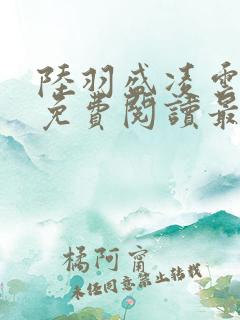 陸羽盛凌雲
免費閱讀最
橘阿甯
未經同意禁止轉載